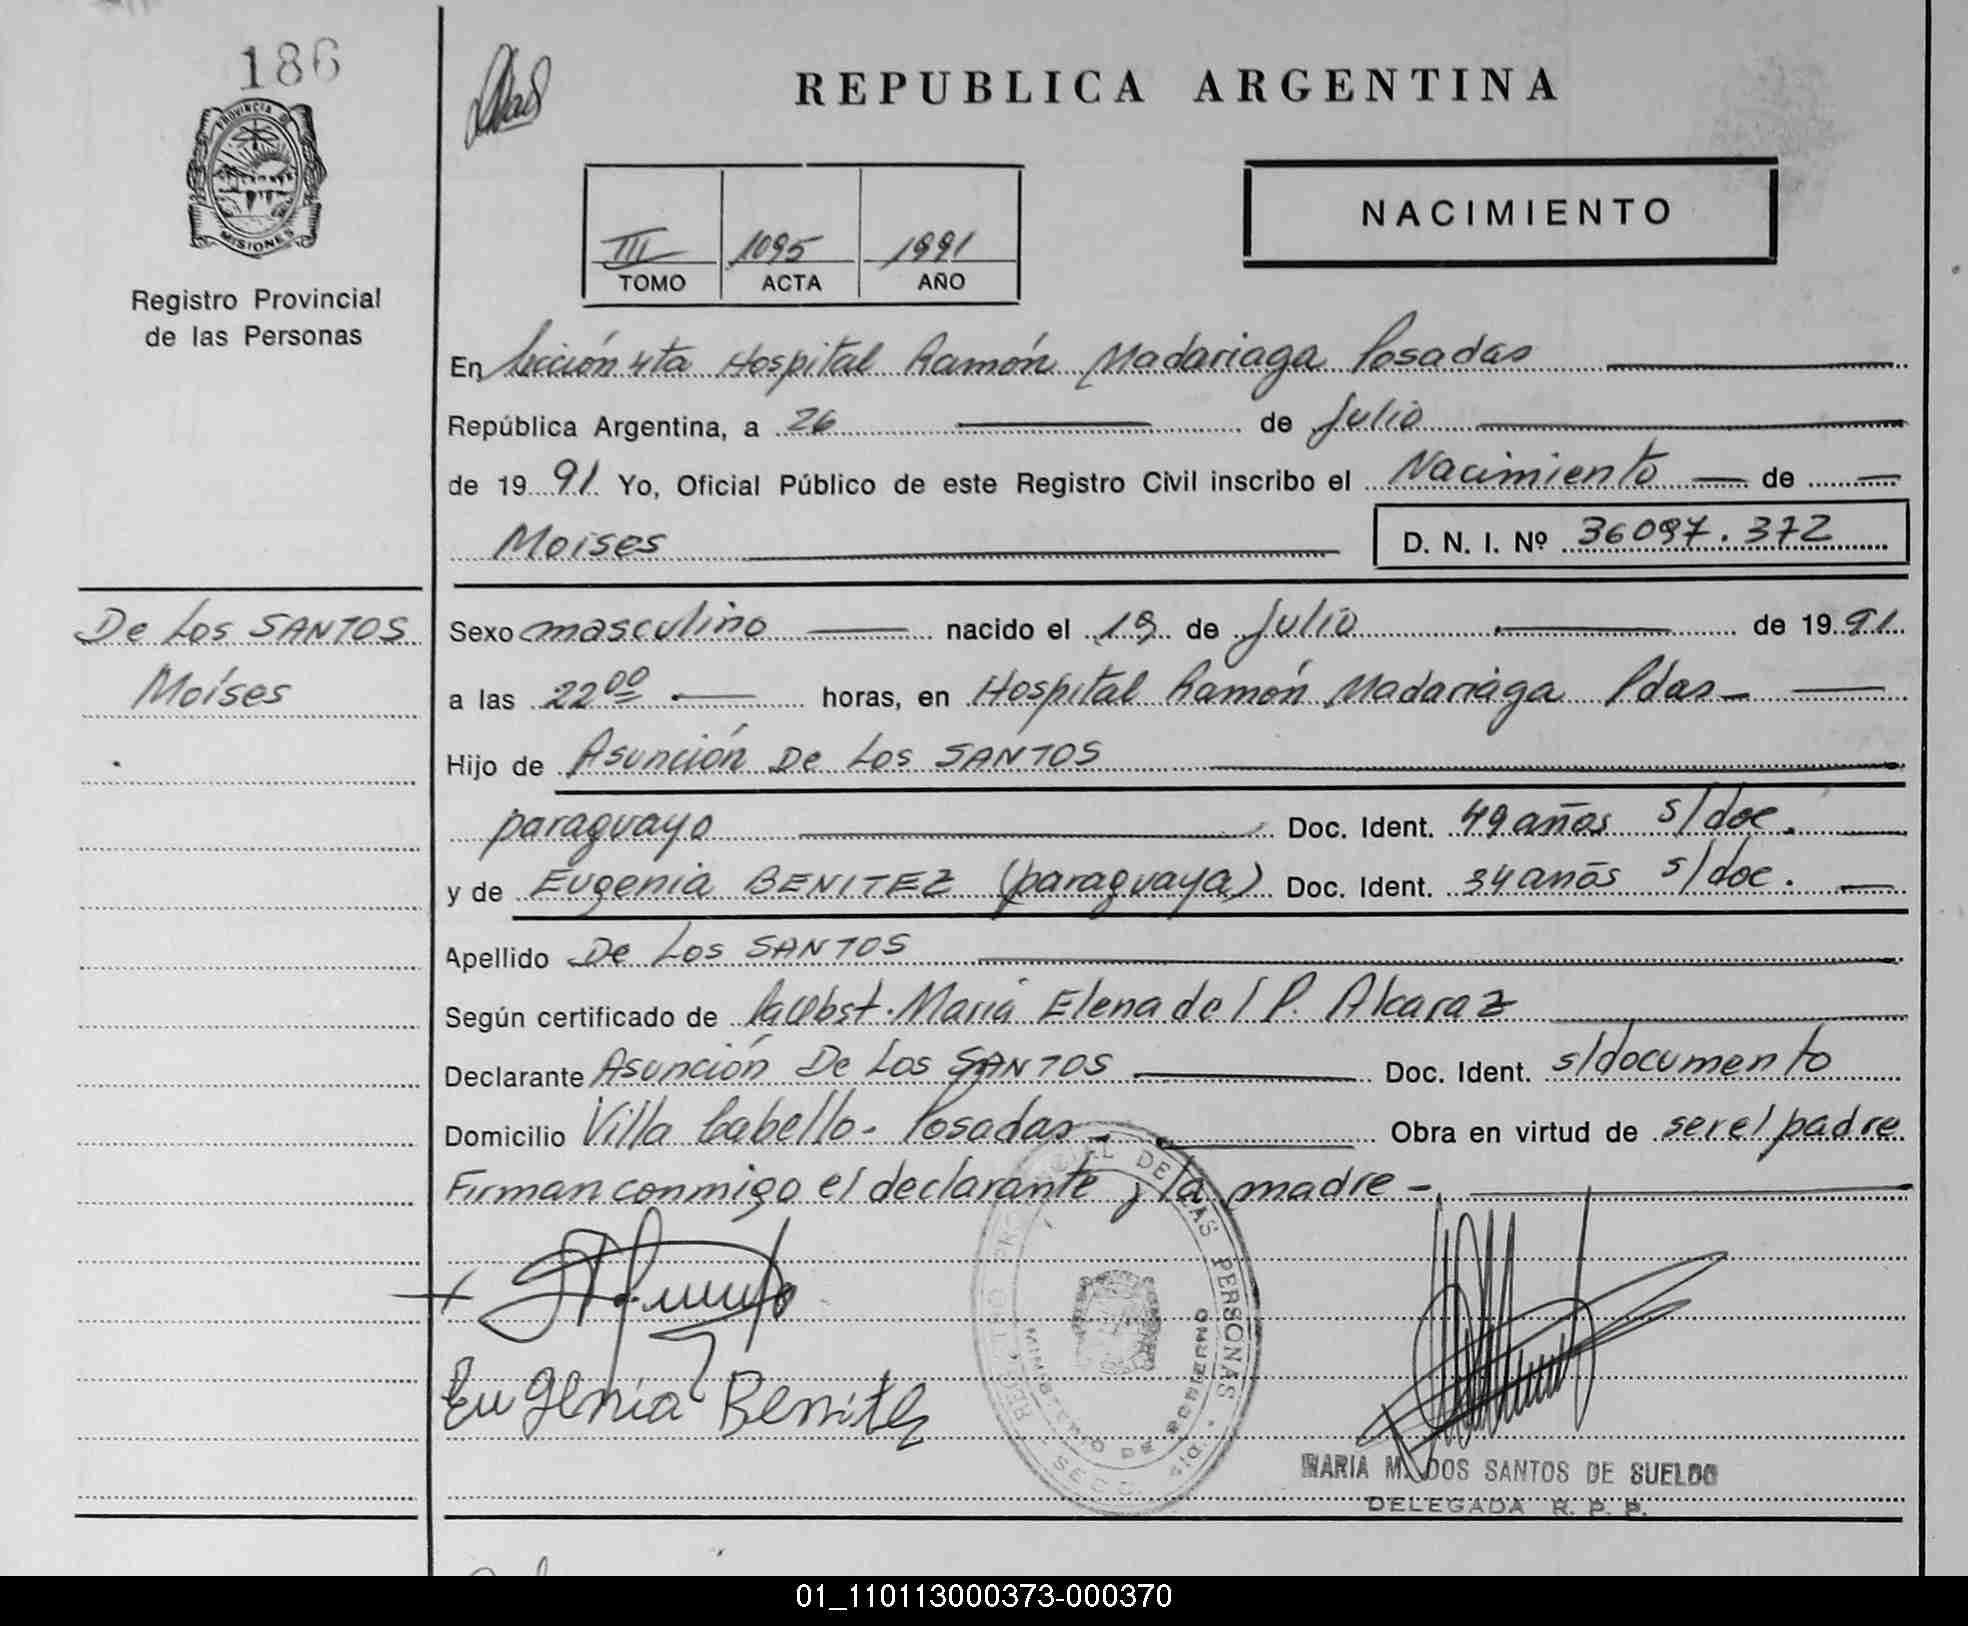 186
PROVINCIA DE
MISIONES
Registro Provincial
de las Personas
REPUBLICA ARGENTINA
NACIMIENTO
III 1095 1991
TOMO ACTA AÑO
En Sección 4ta Hospital Ramón Madariaga Posadas
República Argentina, a 26 de Julio
de 19 91 Yo, Oficial Público de este Registro Civil inscribo el Nacimiento de
Moises D. N. I. Nº 36097.372
De Los SANTOS
Moíses
Sexo masculino nacido el 19 de Julio de 19 91
a las 22 00 horas, en Hospital Ramón Madariaga Pdas
Hijo de Asunción De Los SANTOS
paraguayo Doc. Ident. 49 años s/doc.
y de Eugenia BENITEZ (paraguaya) Doc. Ident. 34 anōs s/doc.
Apellido De Los SANTOS
Según certificado de María Elena del P. Alcaraz
Declarante Asunción De Los SANTOS Doc. Ident. s/documento
Domicilio Villa Cabello - Posadas - Obra en virtud de ser el padre
Firman conmigo el declarante y la madre -
Eugenia Benitez
DE LAS PERSONAS
MINISTERIO DE GOBIERNO
MARIA M. DOS SANTOS DE SUELDO
DELEGADA R. P. P.
01_110113000373-000370